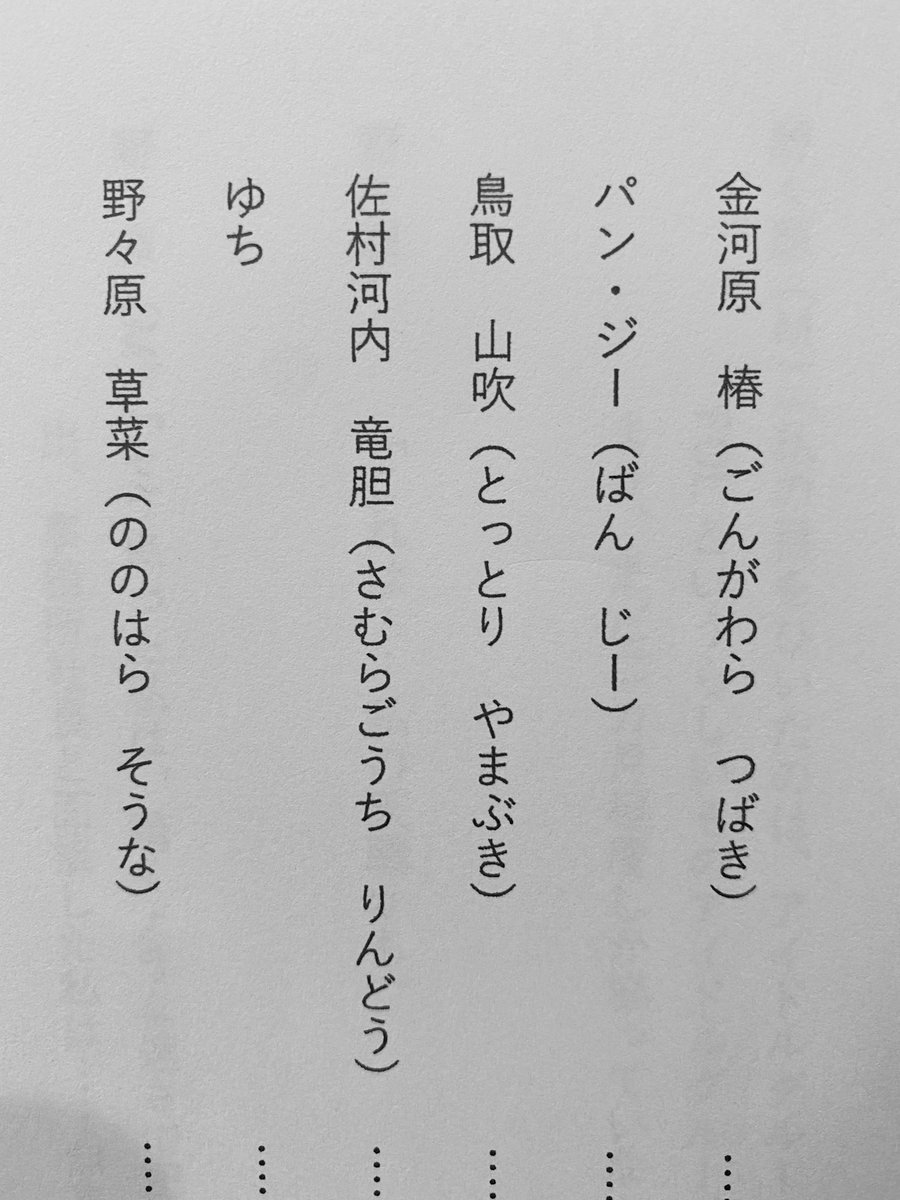 金河原　椿（ごんがわら　つばき）……
パン・ジー（ぱん　じー）……
鳥取　山吹（とっとり　やまぶき）……
佐村河内　竜胆（さむらごうち　りんどう）……
ゆち……
野々原　草菜（ののはら　そうな）……